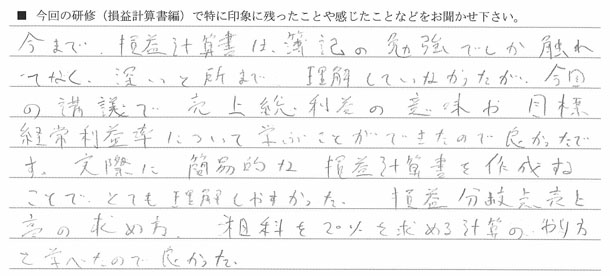 ■ 今回の研修（損益計算書編）で特に印象に残ったことや感じたことなどをお聞かせ下さい。
今まで、損益計算書は、簿記の勉強でしか触れ
てなく、深いと所まで 理解していなかったが、今回
の講義で 売上総利益の意味や目標
経常利益率について学ぶことができたので良かったで
す。実際に 簡易的な 損益計算書を作成する
ことで、とても理解しやすかった。 損益分岐点売上
高の求め方、粗利を20%を求める計算の、やり方
を学べたので良かった。